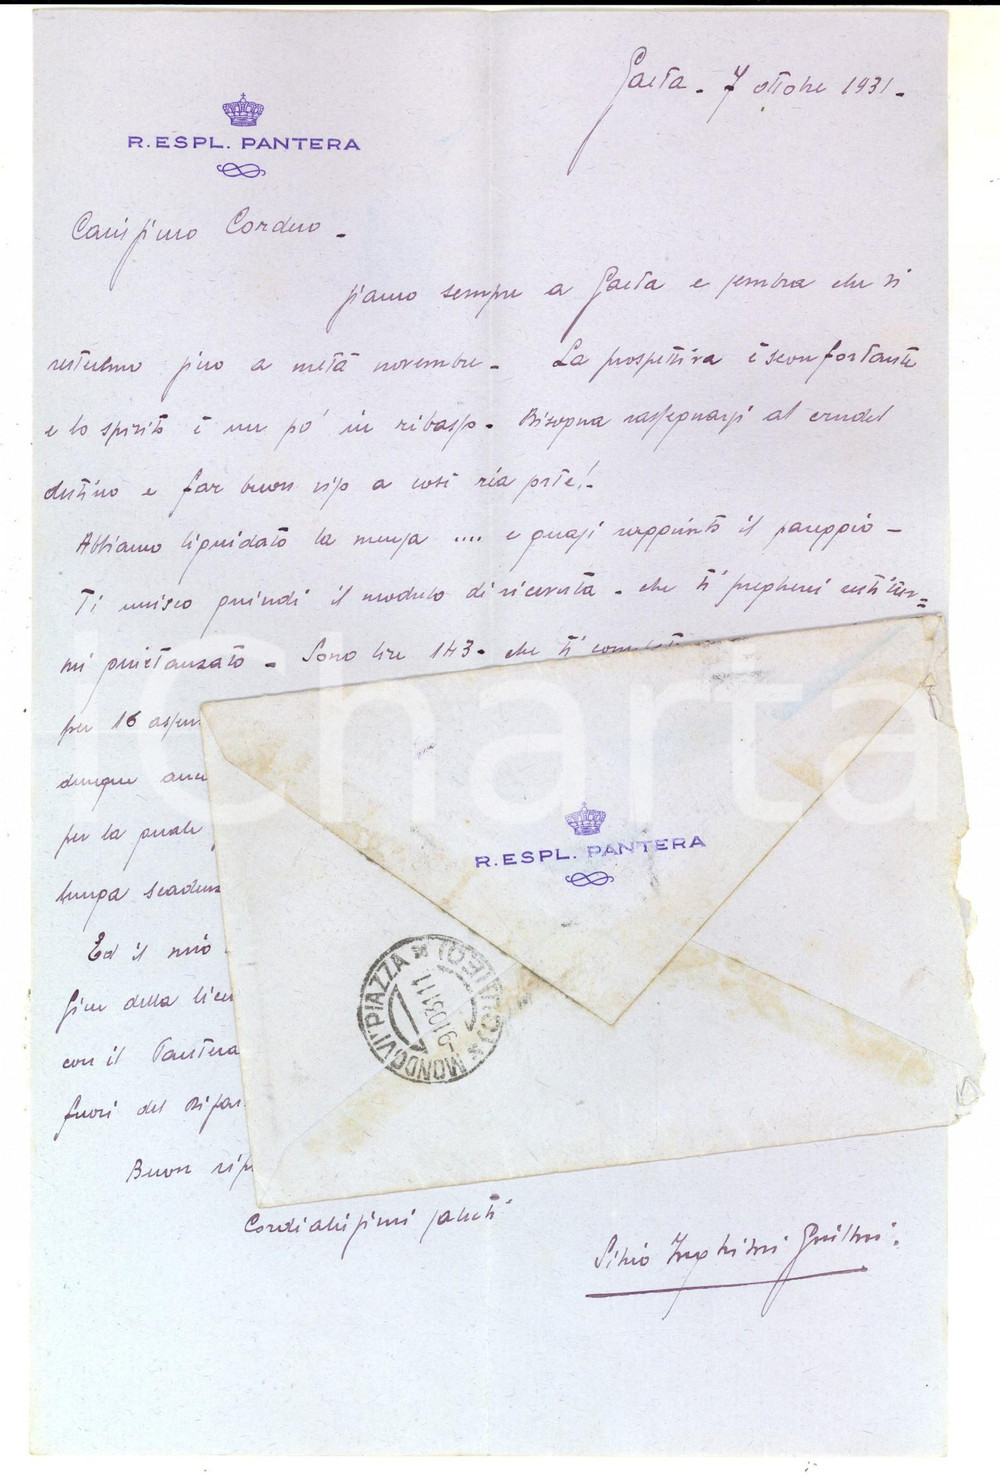 Gaeta - 7 ottobre 1931 -
R. ESPL. PANTERA
Carissimo Cordero -
siamo sempre a Gaeta e sembra che vi
resteremo fino a metà novembre - La prospettiva è sconfortante
e lo spirito è un po' in ribasso - Bisogna rassegnarsi al crudel
destino e far buon viso a così ria sorte! -
Abbiamo liquidato la mensa .... e quasi raggiunto il pareggio -
Ti unisco quindi il modulo di ricevuta - che ti pregherei restituir=
mi quietanzato - Sono lire 143 - che ti
per 16
dunque
per la quale
lunga
Ed il mio
fine della
con il Pantera
fuori del
Buon
Cordialissimi saluti
Silvio
R. ESPL. PANTERA
MONDOVI' PIAZZA * (CUNEO) *
9.10.31.11
iCharta